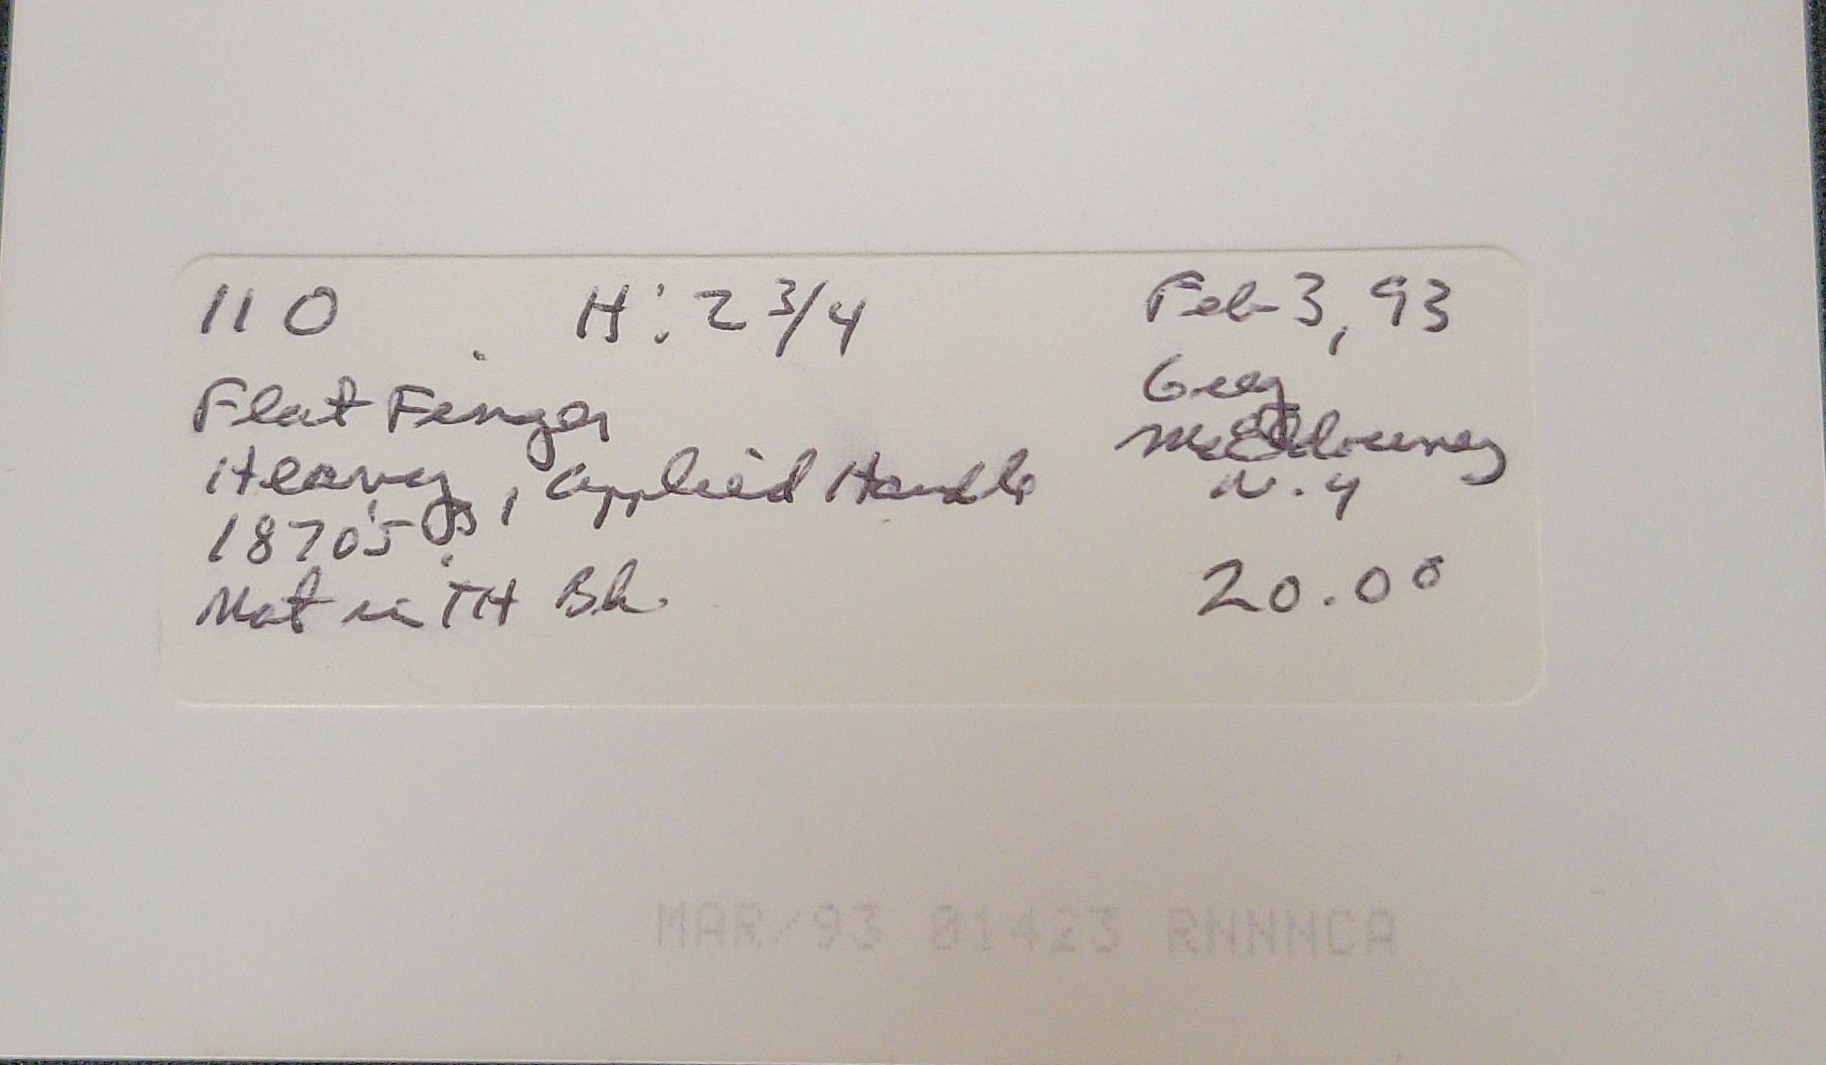 110 H: 2 3/4 Feb 3, 93
Flat Finger
Greg
McEldowney
Heavy, applied Handle
N.Y
1870's
Not in TH Bk.
20.00
MAR/93 01423 RNNNCA